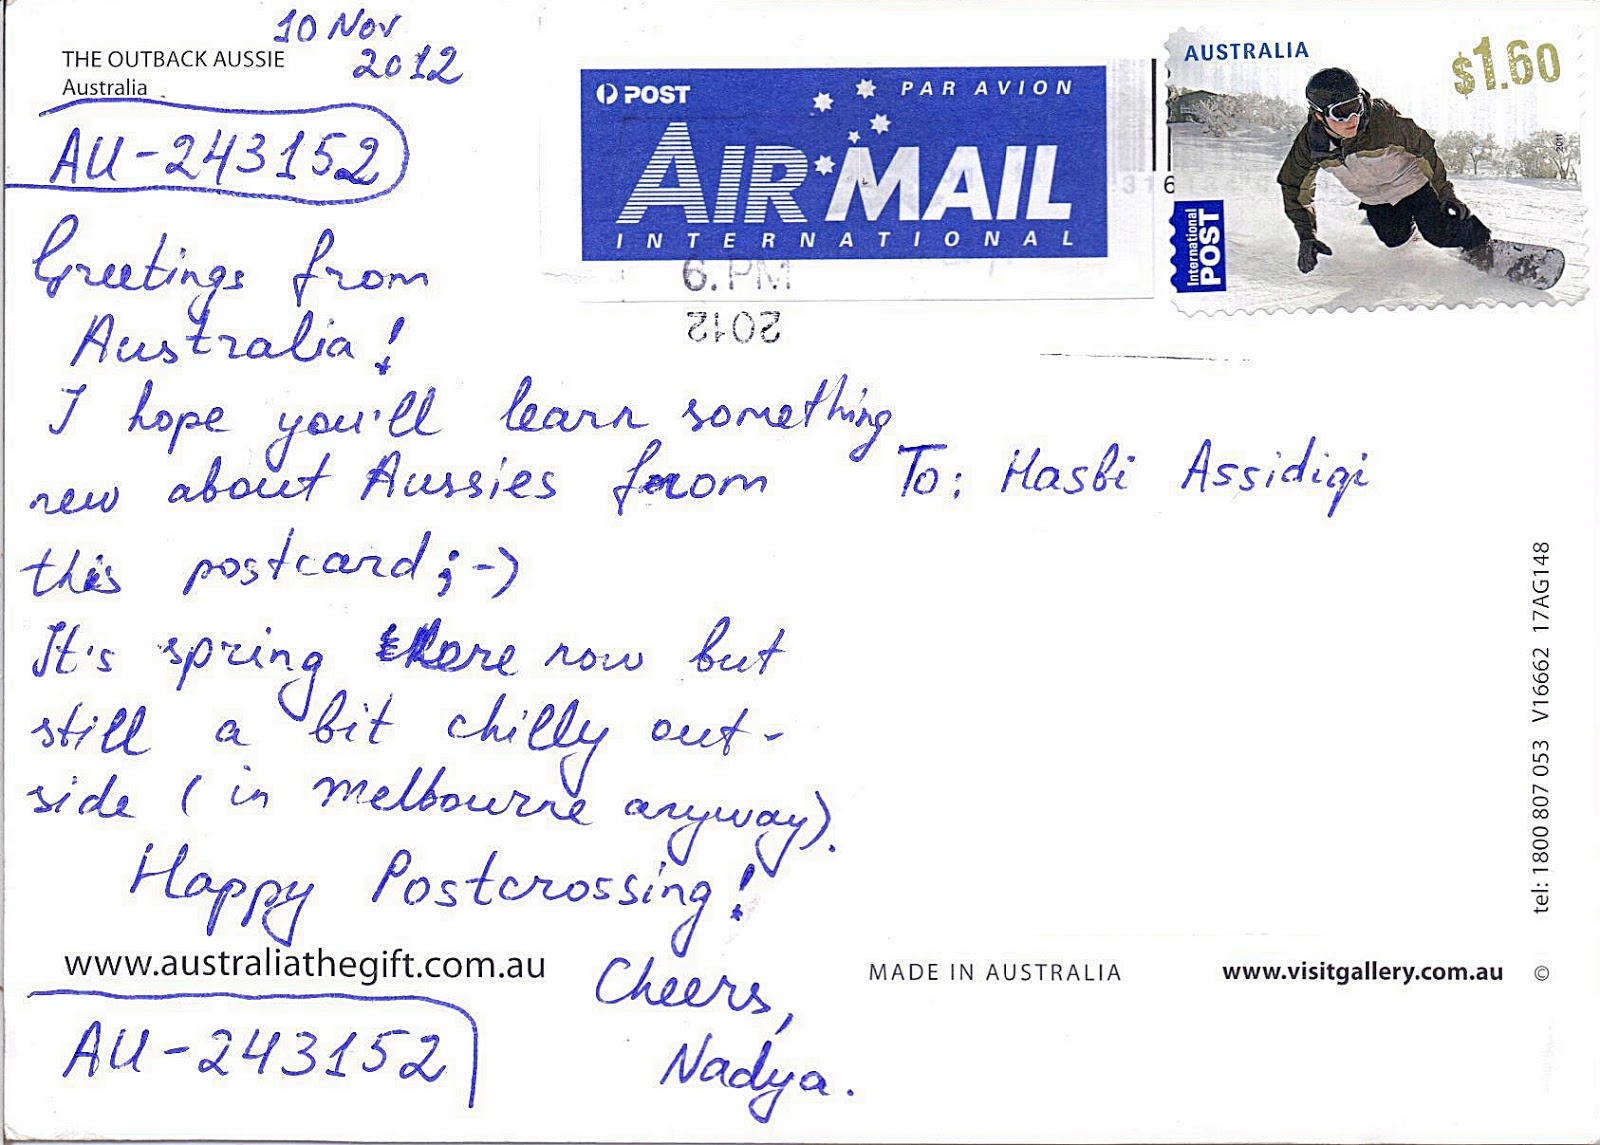 10 Nov
2012
THE OUTBACK AUSSIE
Australia
AU-243152
Greetings from
Australia!
I hope you'll learn something
new about Aussies from
this postcard ;-)
It's spring here now but
still a bit chilly out-
side (in Melbourne anyway).
Happy Postcrossing!
www.australiathegift.com.au
Cheers,
Nadya.
AU-243152
POST
PAR AVION
AIR MAIL
INTERNATIONAL
6.PM
2012
316
AUSTRALIA
$1.60
2011
International
POST
To: Hasbi Assidiqi
tel: 1800 807 053 V16662 17AG148
MADE IN AUSTRALIA
www.visitgallery.com.au ©